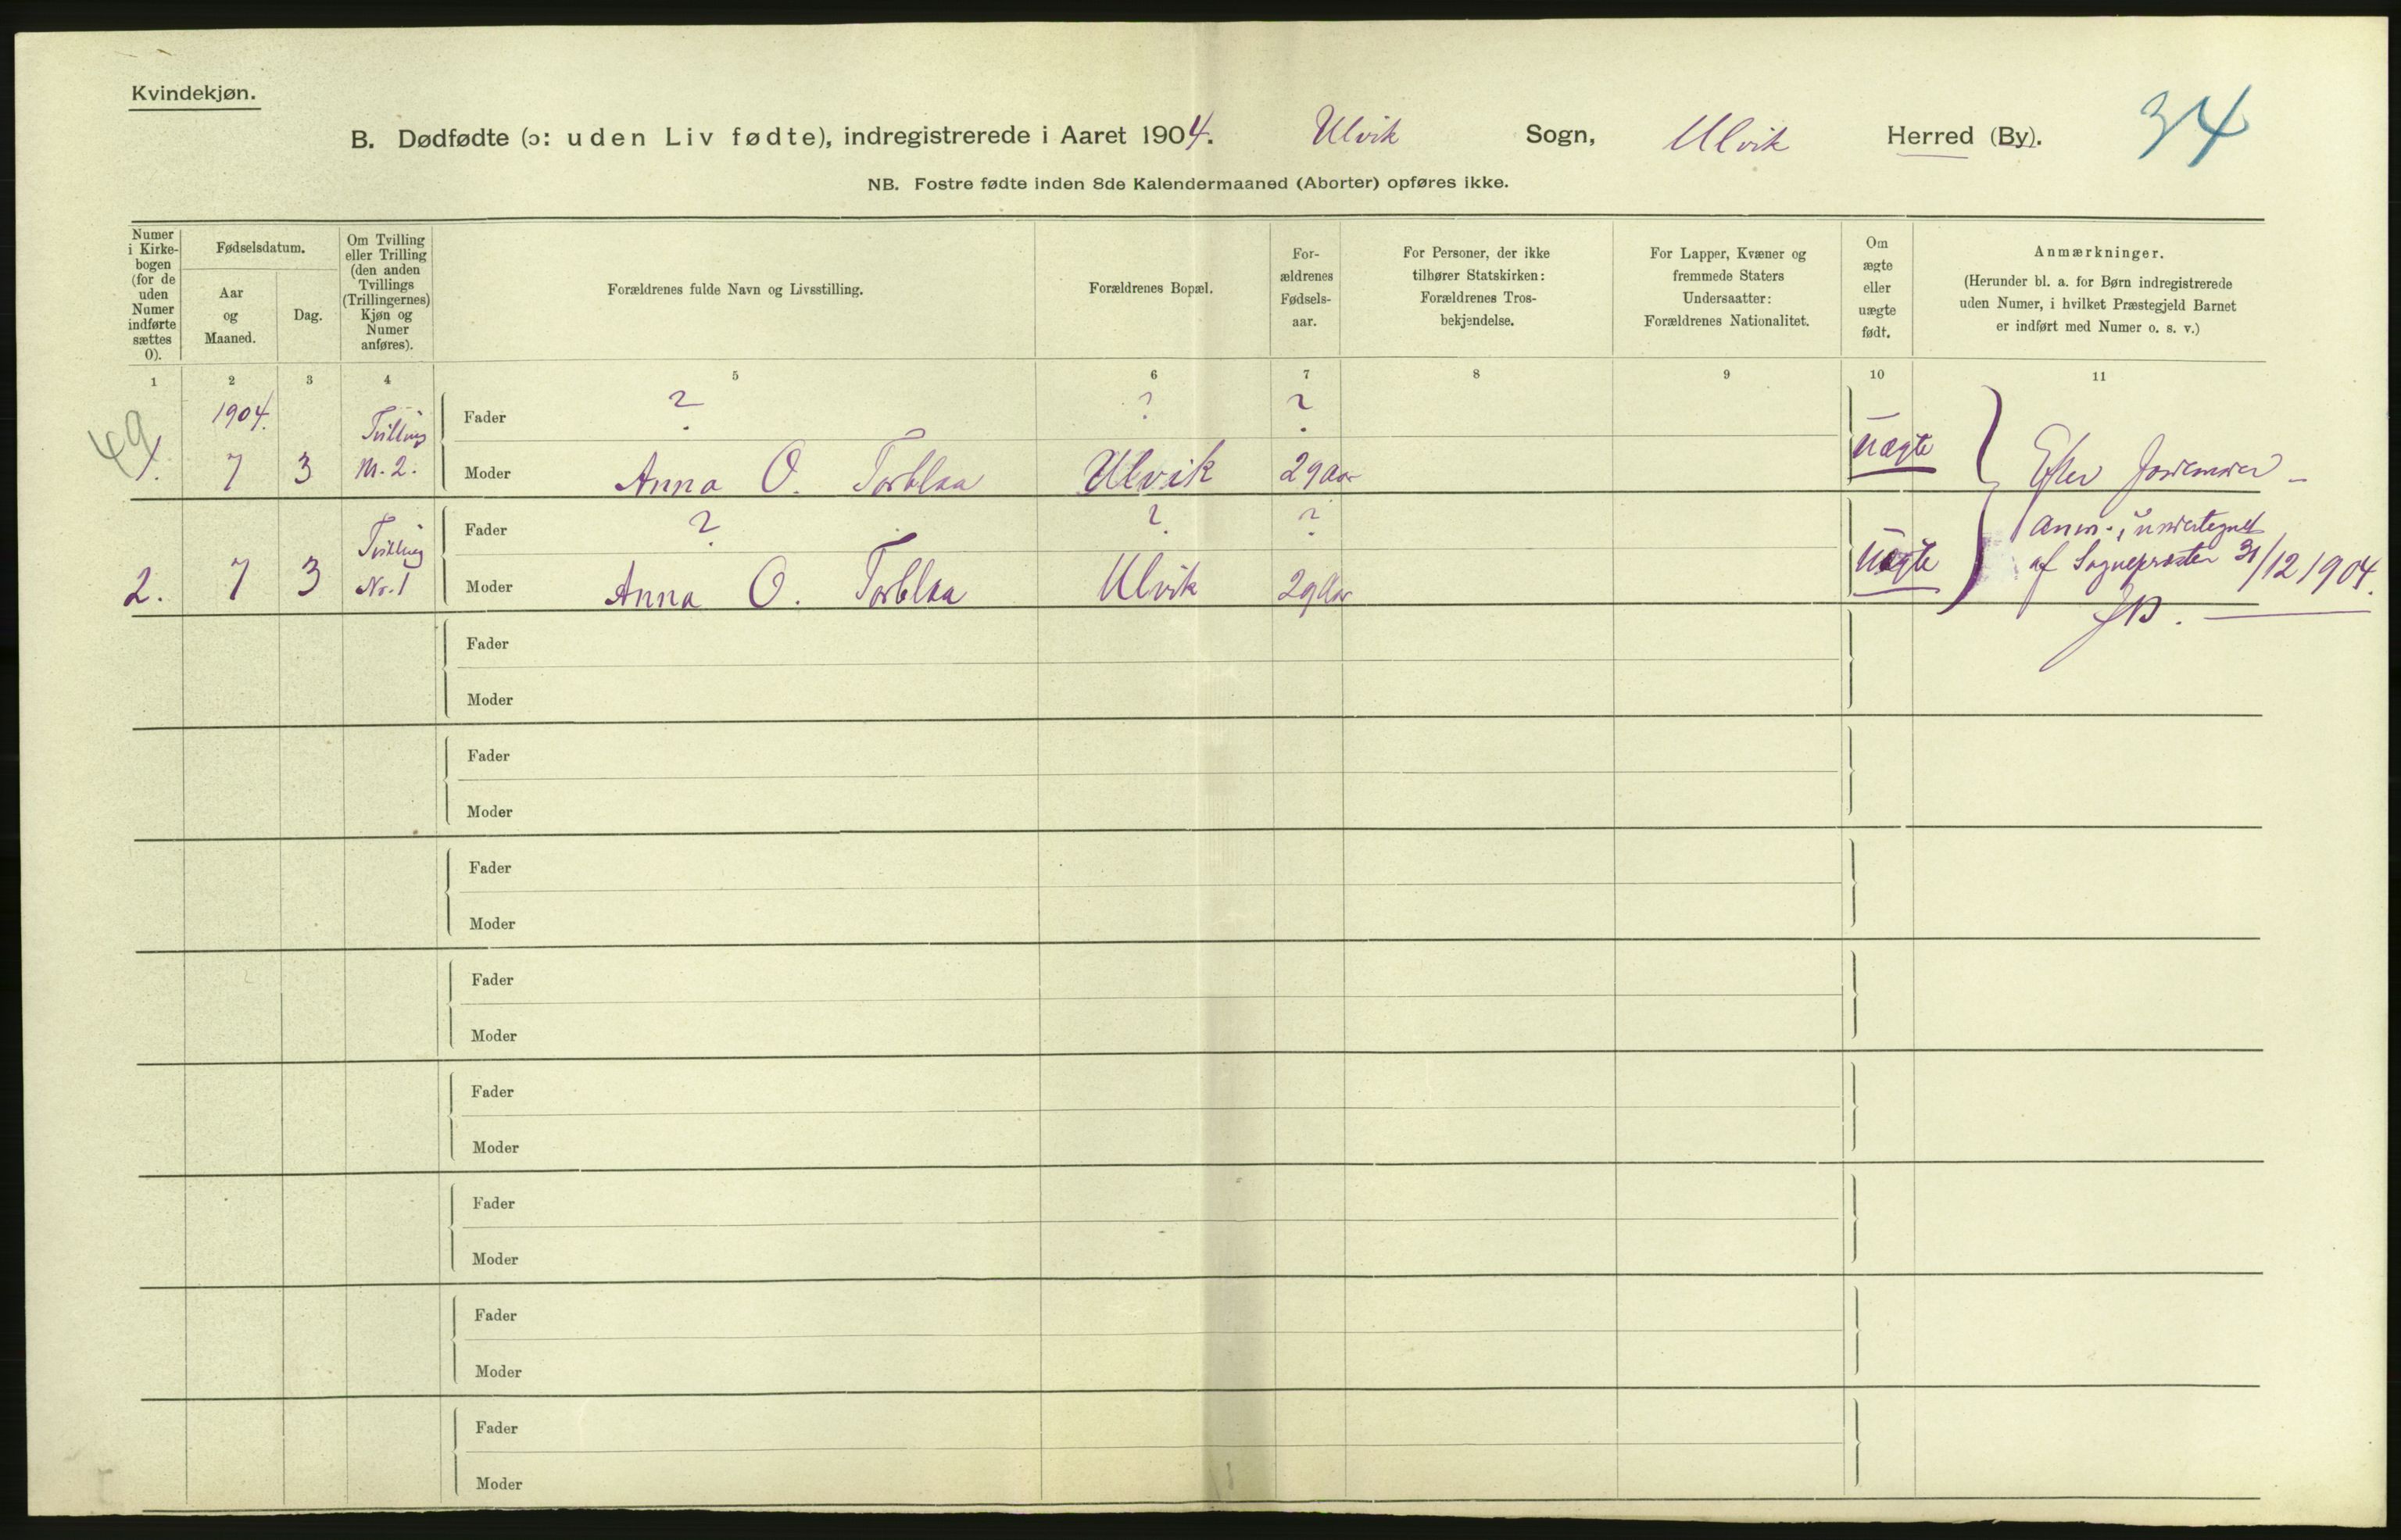 Kvindekjøn.
B. Dødfødte (ɔ: uden Liv fødte), indregistrerede i Aaret 1904. Ulvik Sogn, Ulvik Herred (By). 34
NB. Fostre fødte inden 8de Kalendermaaned (Aborter) opføres ikke.
Numer
i Kirke-
bogen
(for de
uden
Numer
indførte
sættes
0).
Fødselsdatum.
Aar
og
Maaned.
Dag.
Om Tvilling
eller Trilling
(den anden
Tvillings
(Trillingernes)
Kjøn og
Numer
anføres).
Forældrenes fulde Navn og Livsstilling.
Forældrenes Bopæl.
For-
ældrenes
Fødsels-
aar.
For Personer, der ikke
tilhører Statskirken:
Forældrenes Tros-
bekjendelse.
For Lapper, Kvæner og
fremmede Staters
Undersaatter:
Forældrenes Nationalitet.
Om
ægte
eller
uægte
født.
Anmærkninger.
(Herunder bl. a. for Børn indregistrerede
uden Numer, i hvilket Præstegjeld Barnet
er indført med Numer o. s. v.)
1 2 3 4 5 6 7 8 9 10 11
49
1904. Tvilling Fader ? ? ?
1. 7 3 Nr. 2. Moder Anna O. Torblaa Ulvik 29 Aar Uægte Efter Jordemoder
Tvilling Fader ? ? ? Anm. undertegnet
2. 7 3 Nr. 1 Moder Anna O. Torblaa Ulvik 29 Aar Uægte af Sognepræsten 31/12 1904.
Fader
Moder
Fader
Moder
Fader
Moder
Fader
Moder
Fader
Moder
Fader
Moder
Fader
Moder
Fader
Moder